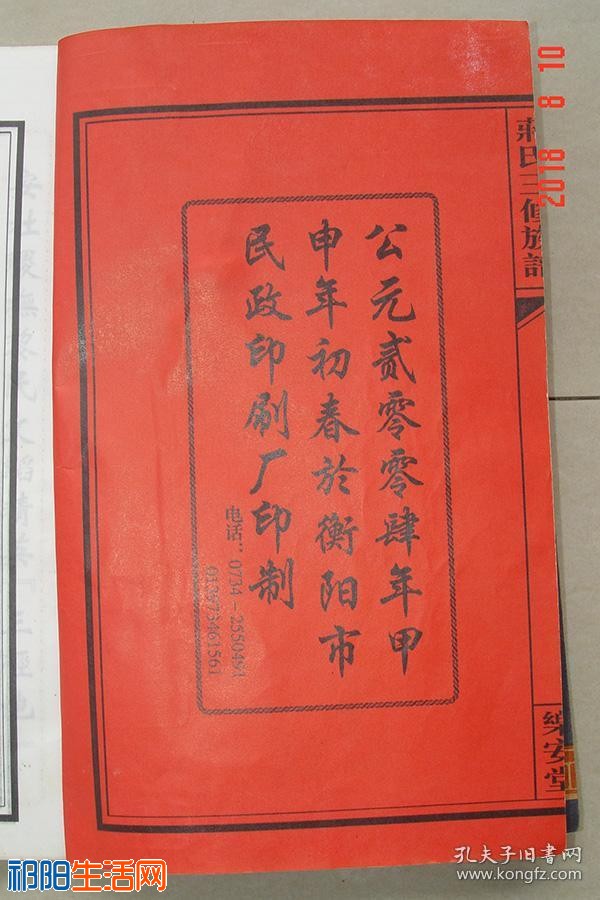 蔣氏三修族譜
樂安堂
公元贰零零肆年甲
申年初春於衡阳市
民政印刷厂印制
电话：0734－2550491
013873461561
2018 8 10
祁阳生活网
孔夫子旧书网
www.kongfz.com